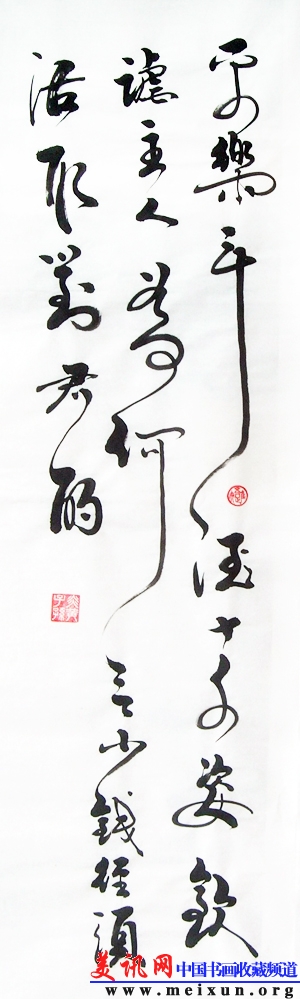 平樂斗酒十千恣歡
謔主人為何言少錢徑須
沽取對君酌
美讯网 中国书画收藏频道
www.meixun.org